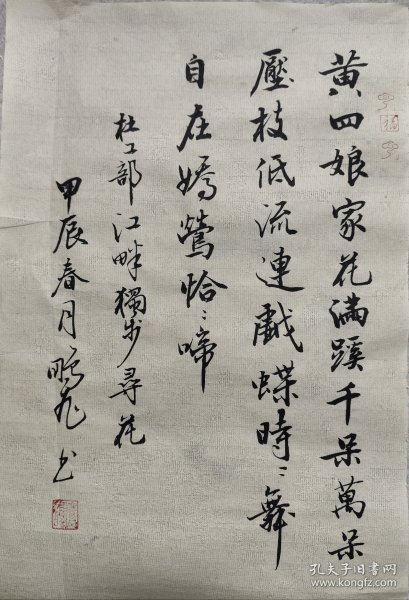 黄四娘家花满蹊千朵萬朵
壓枝低流連戲蝶時〻舞
自在嬌鶯恰〻啼
杜工部江畔獨步尋花
甲辰春月鵬飛书
孔夫子旧书网
www.kongfz.com